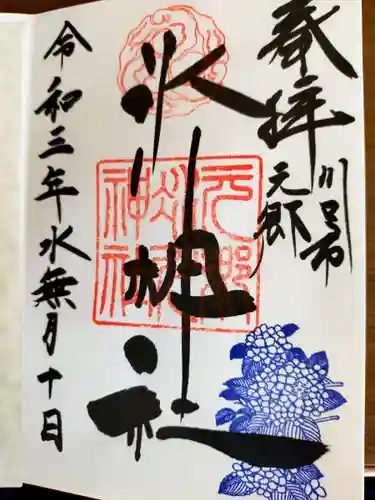 奉拝
川口市
元郷
氷川神社
令和三年水無月十日
元郷
氷川
神社